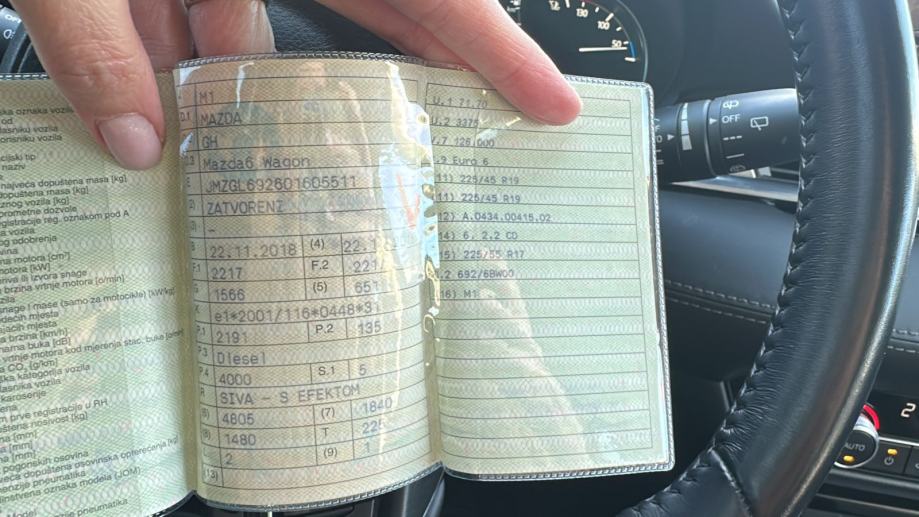 ska oznaka vozila
M1
D.1 MAZDA
GH
D.3 Mazda6 Wagon
E JMZGL692601605511
(2) ZATVORENI
(3) -
B 22.11.2018 (4)
F.1 2217 F.2
G 1566 (5) 651
K e1*2001/116*0448*31
P.1 2191 P.2 135
P.3 Diesel
P.4 4000 S.1 5
R SIVA - S EFEKTOM
(6) 4805 (7) 1840
(8) 1480 T 225
2 (9) 1
(13)
U.1 71,70
U.2 3375
V.7 126,000
V.9 Euro 6
(11) 225/45 R19
(11) 225/45 R19
(12) A.0434.00415.02
(14) 6, 2.2 CD
(15) 225/55 R17
692/6BW00
(16) M1
vlasniku vozila
korisniku vozila
cijski tip
naziv
najveća dopuštena masa [kg]
dopuštena masa [kg]
znog vozila [kg]
prometne dozvole
registracije reg. oznakom pod A
og odobrenja
motora [cm³]
motora [kW]
ili izvora snage
brzina vrtnje motora [o/min]
snage i mase (samo za motocikle) [kW/kg]
sjedećih mjesta
stajaćih mjesta
brzina [km/h]
buka [dB]
vrtnje motora kod mjerenja stac. buka
CO₂ [g/km]
kategorija vozila
vlasnika vozila
karoserije
prve registracije u RH
nosivost [kg]
[mm]
[mm]
[mm]
pogonskih osovina
najveća dopuštena osovinska opterećenja [kg]
dimenzije pneumatika
jedinstvena oznaka modela (JOM)
Model
pneumatika
130
100
50
OFF
OFF
AUTO
2